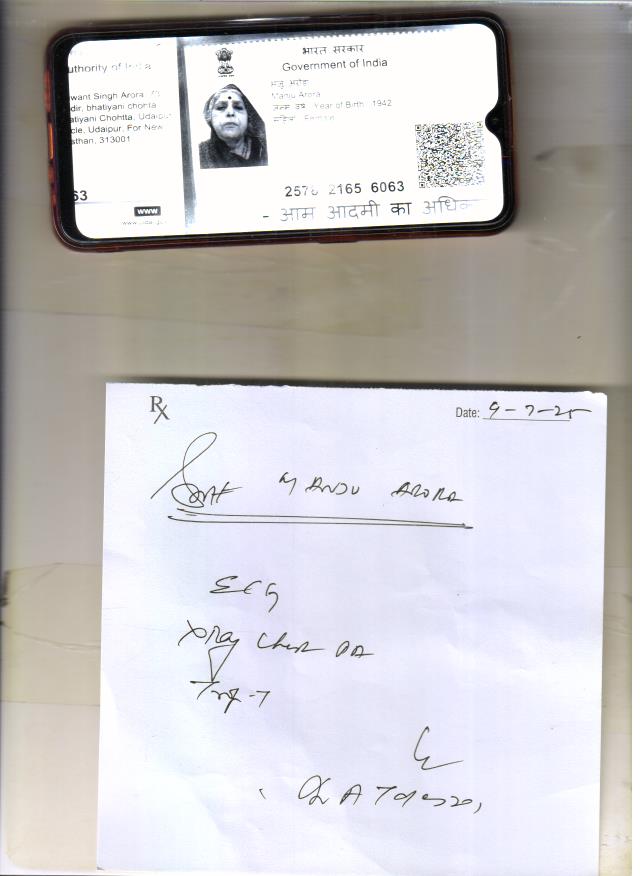 uthority of India
want Singh Arora,
dir, bhatiyani chohta
atiyani Chohtta, Udaipur
cle, Udaipur, For New
sthan, 313001
63
www
भारत सरकार
Government of India
Manju Arora
Year of Birth : 1942
Female
2165 6063
- आम आदमी का अधिक
Rx
Date: 9-7-25
Smt MANJU ARORA
ECG
Xray Chest PA
Trop-T